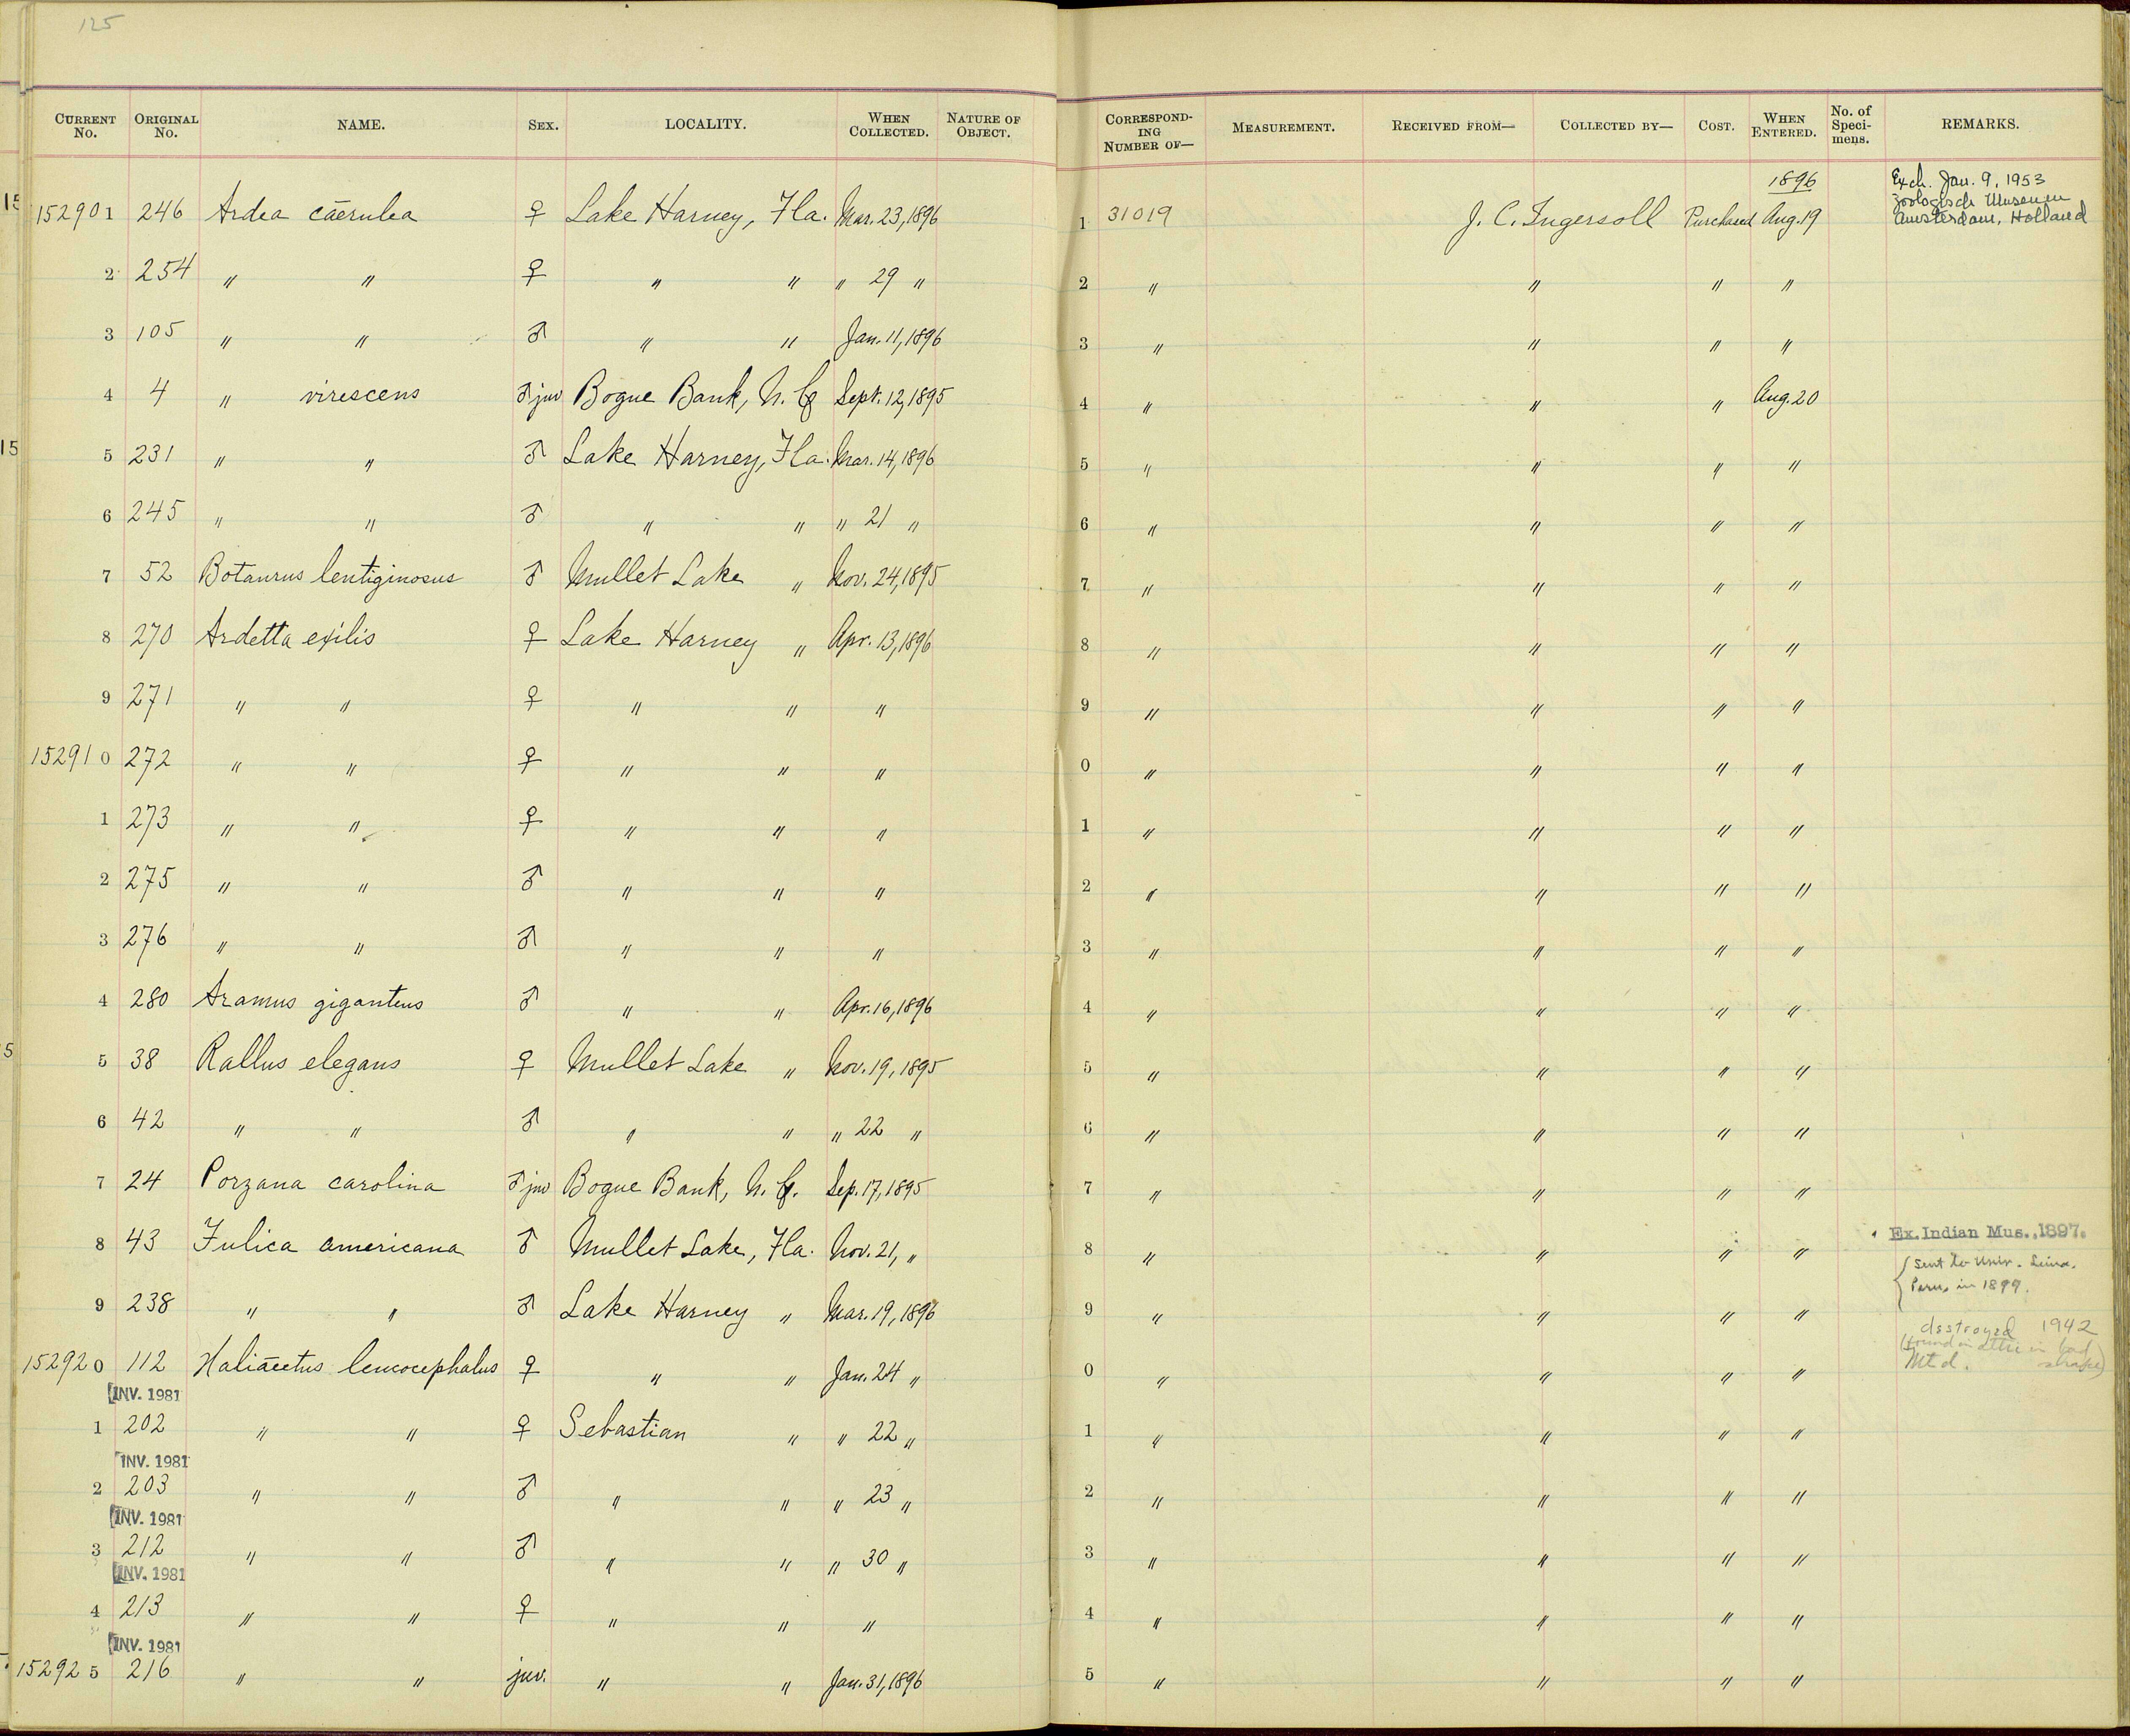 125
CURRENT No. ORIGINAL No. NAME. SEX. LOCALITY. WHEN COLLECTED. NATURE OF OBJECT. CORRESPONDING NUMBER OF— MEASUREMENT. RECEIVED FROM— COLLECTED BY— COST. WHEN ENTERED. No. of Specimens. REMARKS.
152901 246 Ardea cāerulea ♀ Lake Harney, Fla. Mar. 23, 1896 1 31019 J. C. Ingersoll Purchased 1896 Aug. 19 Exch. Jan. 9, 1953 Zoologisch Museum Amsterdam, Holland
2 254 " " ♀ " " " 29 " 2 " " " "
3 105 " " ♂ " " Jan. 11, 1896 3 " " " "
4 4 " virescens ♂ juv Bogue Bank, N. C. Sept. 12, 1895 4 " " " Aug. 20
5 231 " " ♂ Lake Harney, Fla. Mar. 14, 1896 5 " " " "
6 245 " " ♂ " " " 21 " 6 " " " "
7 52 Botaurus lentiginosus ♂ Mullet Lake " Nov. 24, 1895 7 " " " "
8 270 Ardetta exilis ♀ Lake Harney " Apr. 13, 1896 8 " " " "
9 271 " " ♀ " " " 9 " " " "
152910 272 " " ♀ " " " 0 " " " "
1 273 " " ♀ " " " 1 " " " "
2 275 " " ♂ " " " 2 " " " "
3 276 " " ♂ " " " 3 " " " "
4 280 Aramus giganteus ♂ " " Apr. 16, 1896 4 " " " "
5 38 Rallus elegans ♀ Mullet Lake " Nov. 19, 1895 5 " " " "
6 42 " " ♂ " " " 22 " 6 " " " "
7 24 Porzana carolina ♂ juv Bogue Bank, N. C. Sep. 17, 1895 7 " " " "
8 43 Fulica americana ♂ Mullet Lake, Fla. Nov. 21, " 8 " " " " Ex. Indian Mus., 1897.
9 238 " " ♂ Lake Harney " Mar. 19, 1896 9 " " " " { Sent to Univ. Lima, Peru, in 1899.
152920 112 Haliāeetus leucocephalus ♀ " " Jan. 24 " 0 " " " " destroyed 1942 (found in attic in bad shape) Mtd.
INV. 1981
1 202 " " ♀ Sebastian " " 22 " 1 " " " "
INV. 1981
2 203 " " ♂ " " " 23 " 2 " " " "
INV. 1981
3 212 " " ♂ " " " 30 " 3 " " " "
INV. 1981
4 213 " " ♀ " " " 4 " " " "
INV. 1981
152925 216 " " juv. " " Jan. 31, 1896 5 " " " "